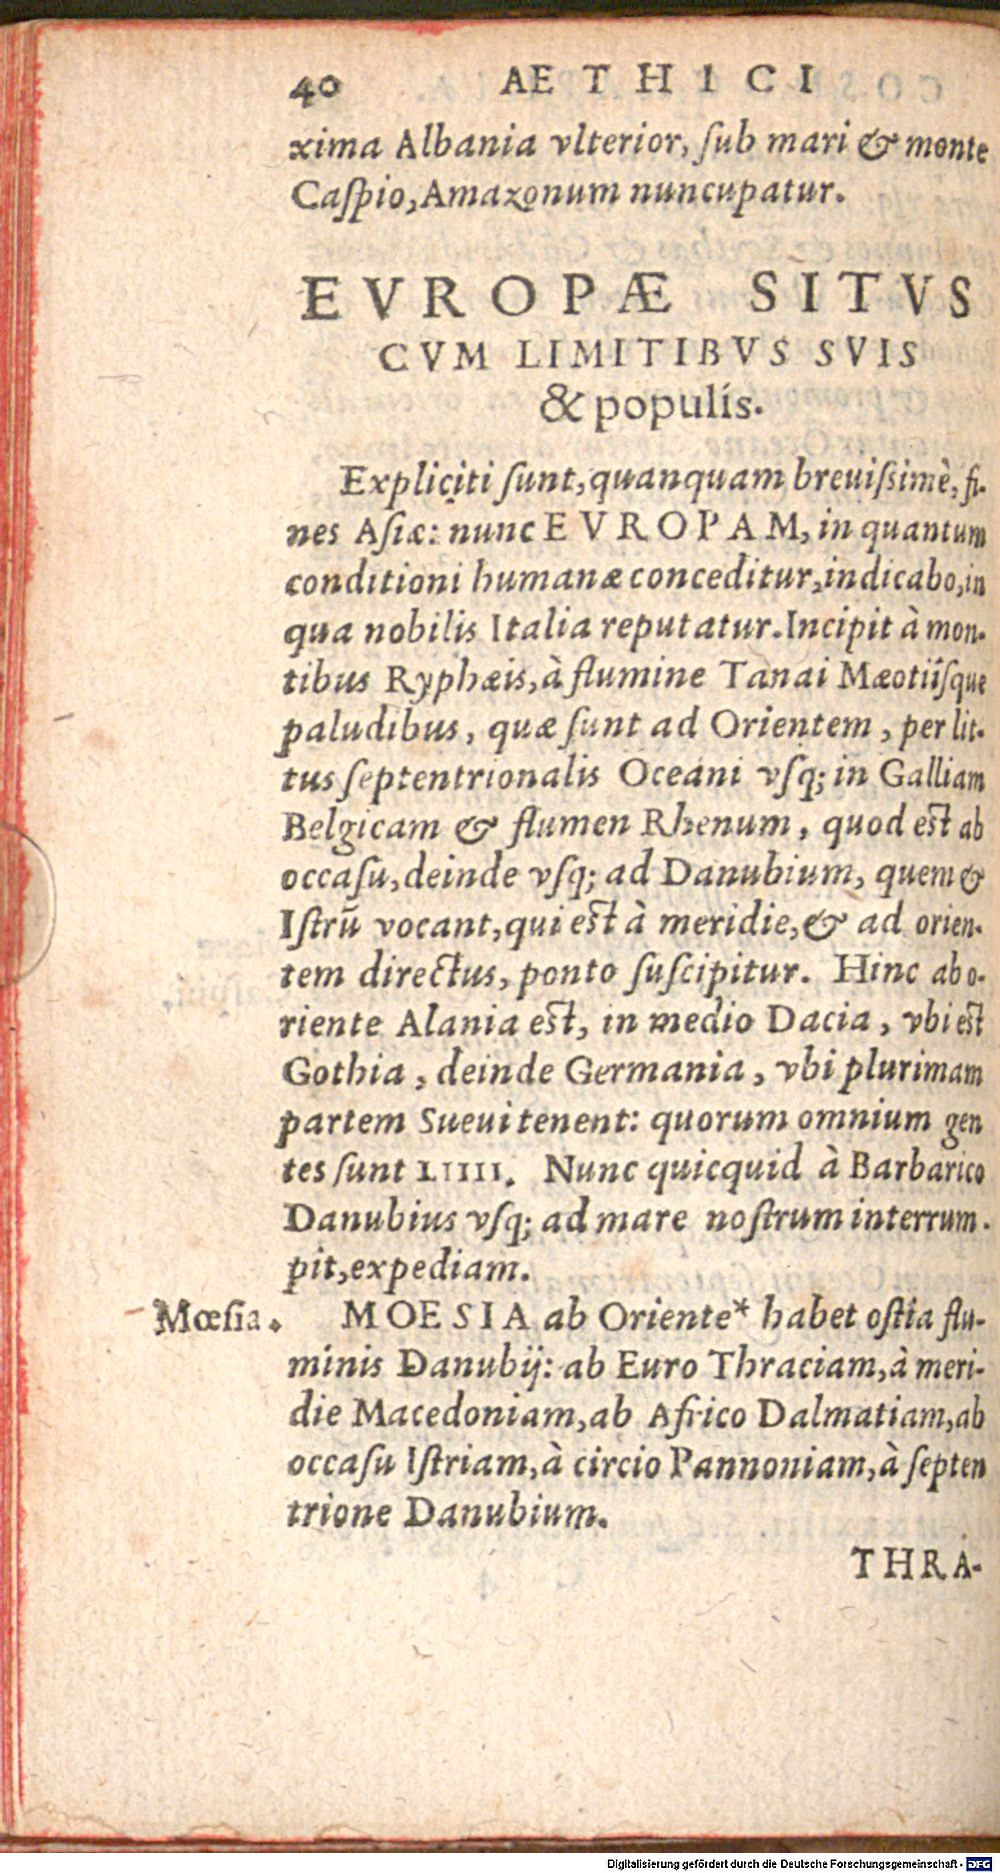 40 AETHICI
xima Albania vlterior, ſub mari & monte
Caſpio, Amazonum nuncupatur.
EVROPÆ SITVS
CVM LIMITIBVS SVIS
& populis.
Expliciti ſunt, quanquam breuiſsimè, fi-
nes Aſiæ: nunc EVROPAM, in quantum
conditioni humanæ conceditur, indicabo, in
qua nobilis Italia reputatur. Incipit à mon-
tibus Ryphæis, à flumine Tanai Mæotiíſque
paludibus, quæ ſunt ad Orientem, per lit-
tus ſeptentrionalis Oceani vſq; in Galliam
Belgicam & flumen Rhenum, quod eſt ab
occaſu, deinde vſq; ad Danubium, quem &
Iſtrū vocant, qui eſt à meridie, & ad orien-
tem directus, ponto ſuſcipitur. Hinc ab o-
riente Alania eſt, in medio Dacia, vbi eſt
Gothia, deinde Germania, vbi plurimam
partem Sueui tenent: quorum omnium gen
tes ſunt LIIII. Nunc quicquid à Barbarico
Danubius vſq; ad mare noſtrum interrum-
pit, expediam.
Mœſia. MOESIA ab Oriente* habet oſtia flu-
minis Danubij: ab Euro Thraciam, à meri-
die Macedoniam, ab Africo Dalmatiam, ab
occaſu Iſtriam, à circio Pannoniam, à ſepten
trione Danubium.
THRA-
Digitalisierung gefördert durch die Deutsche Forschungsgemeinschaft - DFG